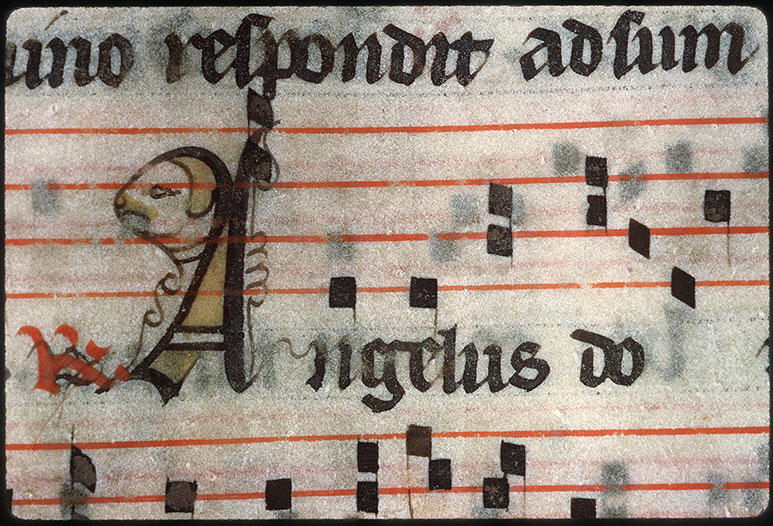 uino respondit adsum
℟. Angelus do